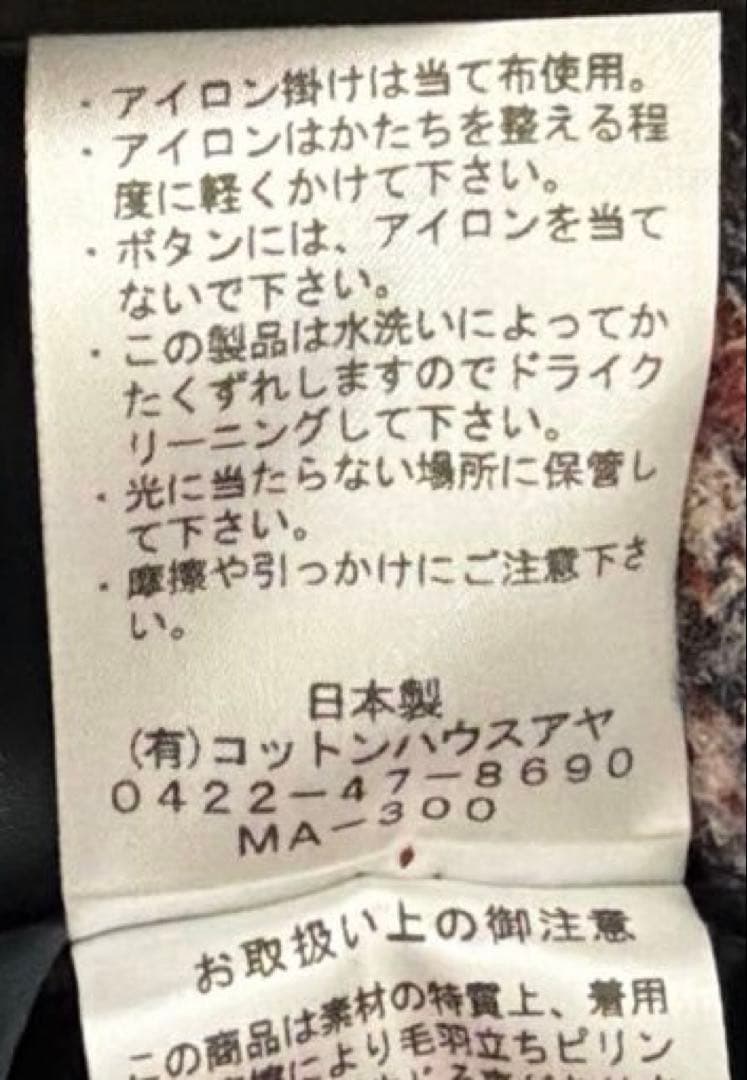 ・アイロン掛けは当て布使用。
・アイロンはかたちを整える程
度に軽くかけて下さい。
・ボタンには、アイロンを当て
ないで下さい。
・この製品は水洗いによってか
たくずれしますのでドライク
リーニングして下さい。
・光に当たらない場所に保管し
て下さい。
・摩擦や引っかけにご注意下さ
い。
日本製
(有)コットンハウスアヤ
0422-47-8690
MA-300
お取扱い上の御注意
この商品は素材の特質上、着用
により毛羽立ちピリン